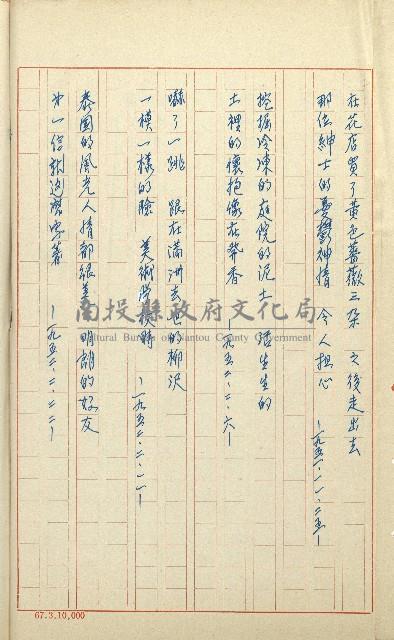 在花店買了黃色薔薇三朵 之後走出去
那位紳士的憂鬱神情 令人担心 —一九五一.一一.二五—
挖掘冷凍的庭院的泥土 活生生的
土裡的懷抱像在發香 —一九五二.二.六—
嚇了一跳 跟在滿洲去世的柳沢
一模一樣的臉 美術學校時 —一九五二.二.一一—
泰國的風光人情都很美 明朗的好友
第一信就這麼寫著 —一九五二.二.二二—
南投縣政府文化局
Cultural Bureau of Nantou County Government
67.3.10,000